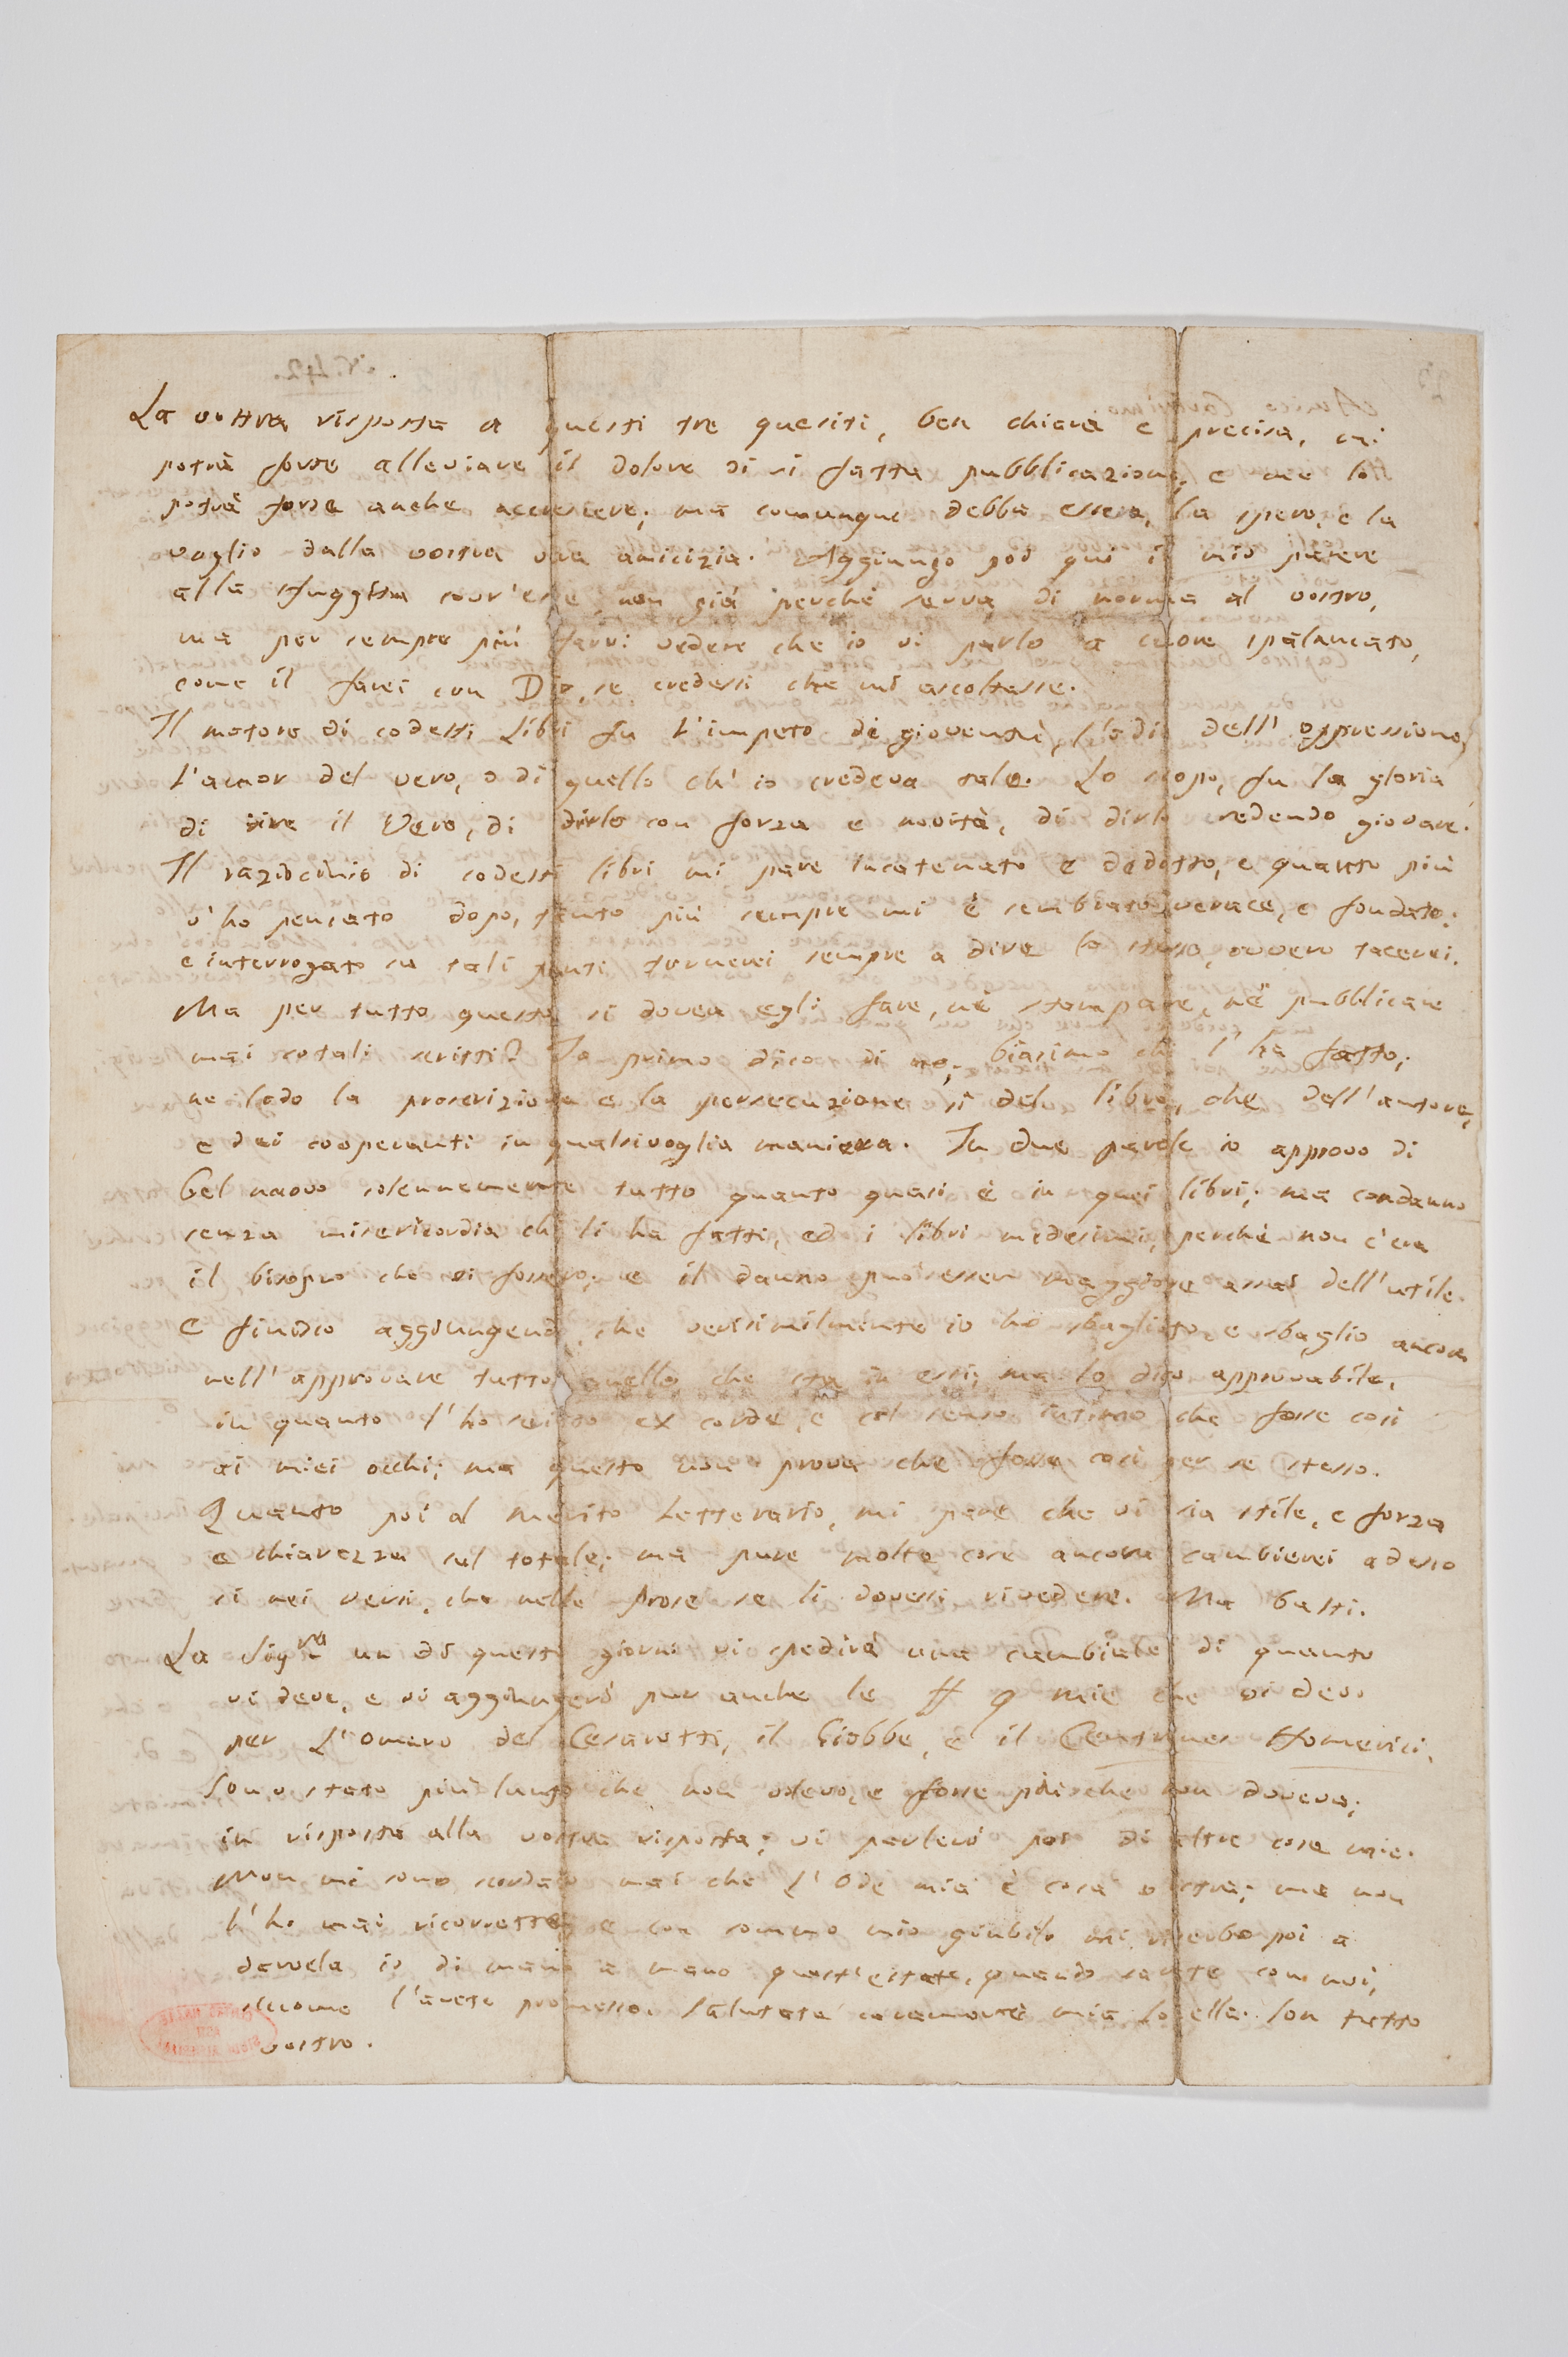 La vostra risposta a questi tre quesiti, ben chiara e precisa, mi
potrà forse alleviare il dolore di si fatta pubblicazione; e me lo
potrà forse anche accrescere; ma comunque debba essere, la spero, e la
voglio dalla vostra vera amicizia. Aggiungo poi qui il mio parere
alla sfuggita sovr'esse, non già perchè serva di norma al vostro,
ma per sempre più farvi vedere che io vi parlo a cuore spalancato,
come il farei con Dio, se credessi che mi ascoltasse.
Il motore di codesti Libri fu L'impeto di gioventù, l'odio dell'oppressione,
L'amor del vero, o di quello ch'io credeva tale. Lo scopo, fu la gloria
di dire il Vero, di dirlo con forza e novità, di dirlo credendo giovare.
Il raziocinio di codesti libri mi pare incatenato e dedotto, e quanto più
v'ho pensato dopo, tanto più sempre mi è sembrato verace, e fondato:
e interrogato su tali punti tornerei sempre a dire lo stesso, ovvero tacerei.
Ma per tutto questo si dovea egli fare, nè stampare, nè pubblicare
mai cotali scritti? Io primo dico di no; biasimo chi l'ha fatto;
ne lodo la proscrizione e la persecuzione sì del libro, che dell'autore,
e dei cooperanti in qualsivoglia maniera. In due parole io approvo di
bel nuovo solennemente tutto quanto quasi è in quei libri; ma condanno
senza misericordia chi li ha fatti, ed i libri medesimi, perchè non c'era
il bisogno che vi fossero; e il danno può esser maggiore assai dell'utile.
E finisco aggiungendo, che verisimilmente io ho sbagliato, e sbaglio ancora
nell'approvare tutto quello che sta in essi; ma lo dico approvabile,
in quanto l'ho scritto ex corde, e col senso intimo che fosse così
ai miei occhi; ma questo non prova che fosse così per se stesso.
Quanto poi al merito Letterario, mi pare che vi sia stile, e forza
e chiarezza sul totale; ma pure molte cose ancora cambierei adesso
sì nei versi, che nelle prose se li dovessi rivedere. Ma basti.
La Sigra un di questi giorni vi spedirà una cambiale di quanto
vi deve, e vi aggiungerò pur anche le mie che vi devo
per L'Omero del Cesarotti, il Giobbe, e il Centones Homerici.
Sono stato più lungo che non volevo, e forse più che non doveva;
in risposta alla vostra risposta; vi parlerò poi di altre cose mie.
Non mi sono scordato mai che L'Ode mia è cosa vostra; ma non
l'ho mai ricorretta; e con sommo mio giubilo mi riserbo poi a
darvela io di mano a mano quest'estate, quando sarete con noi,
siccome l'avete promesso. Salutate caramente mia Sorella. Son tutto
vostro.